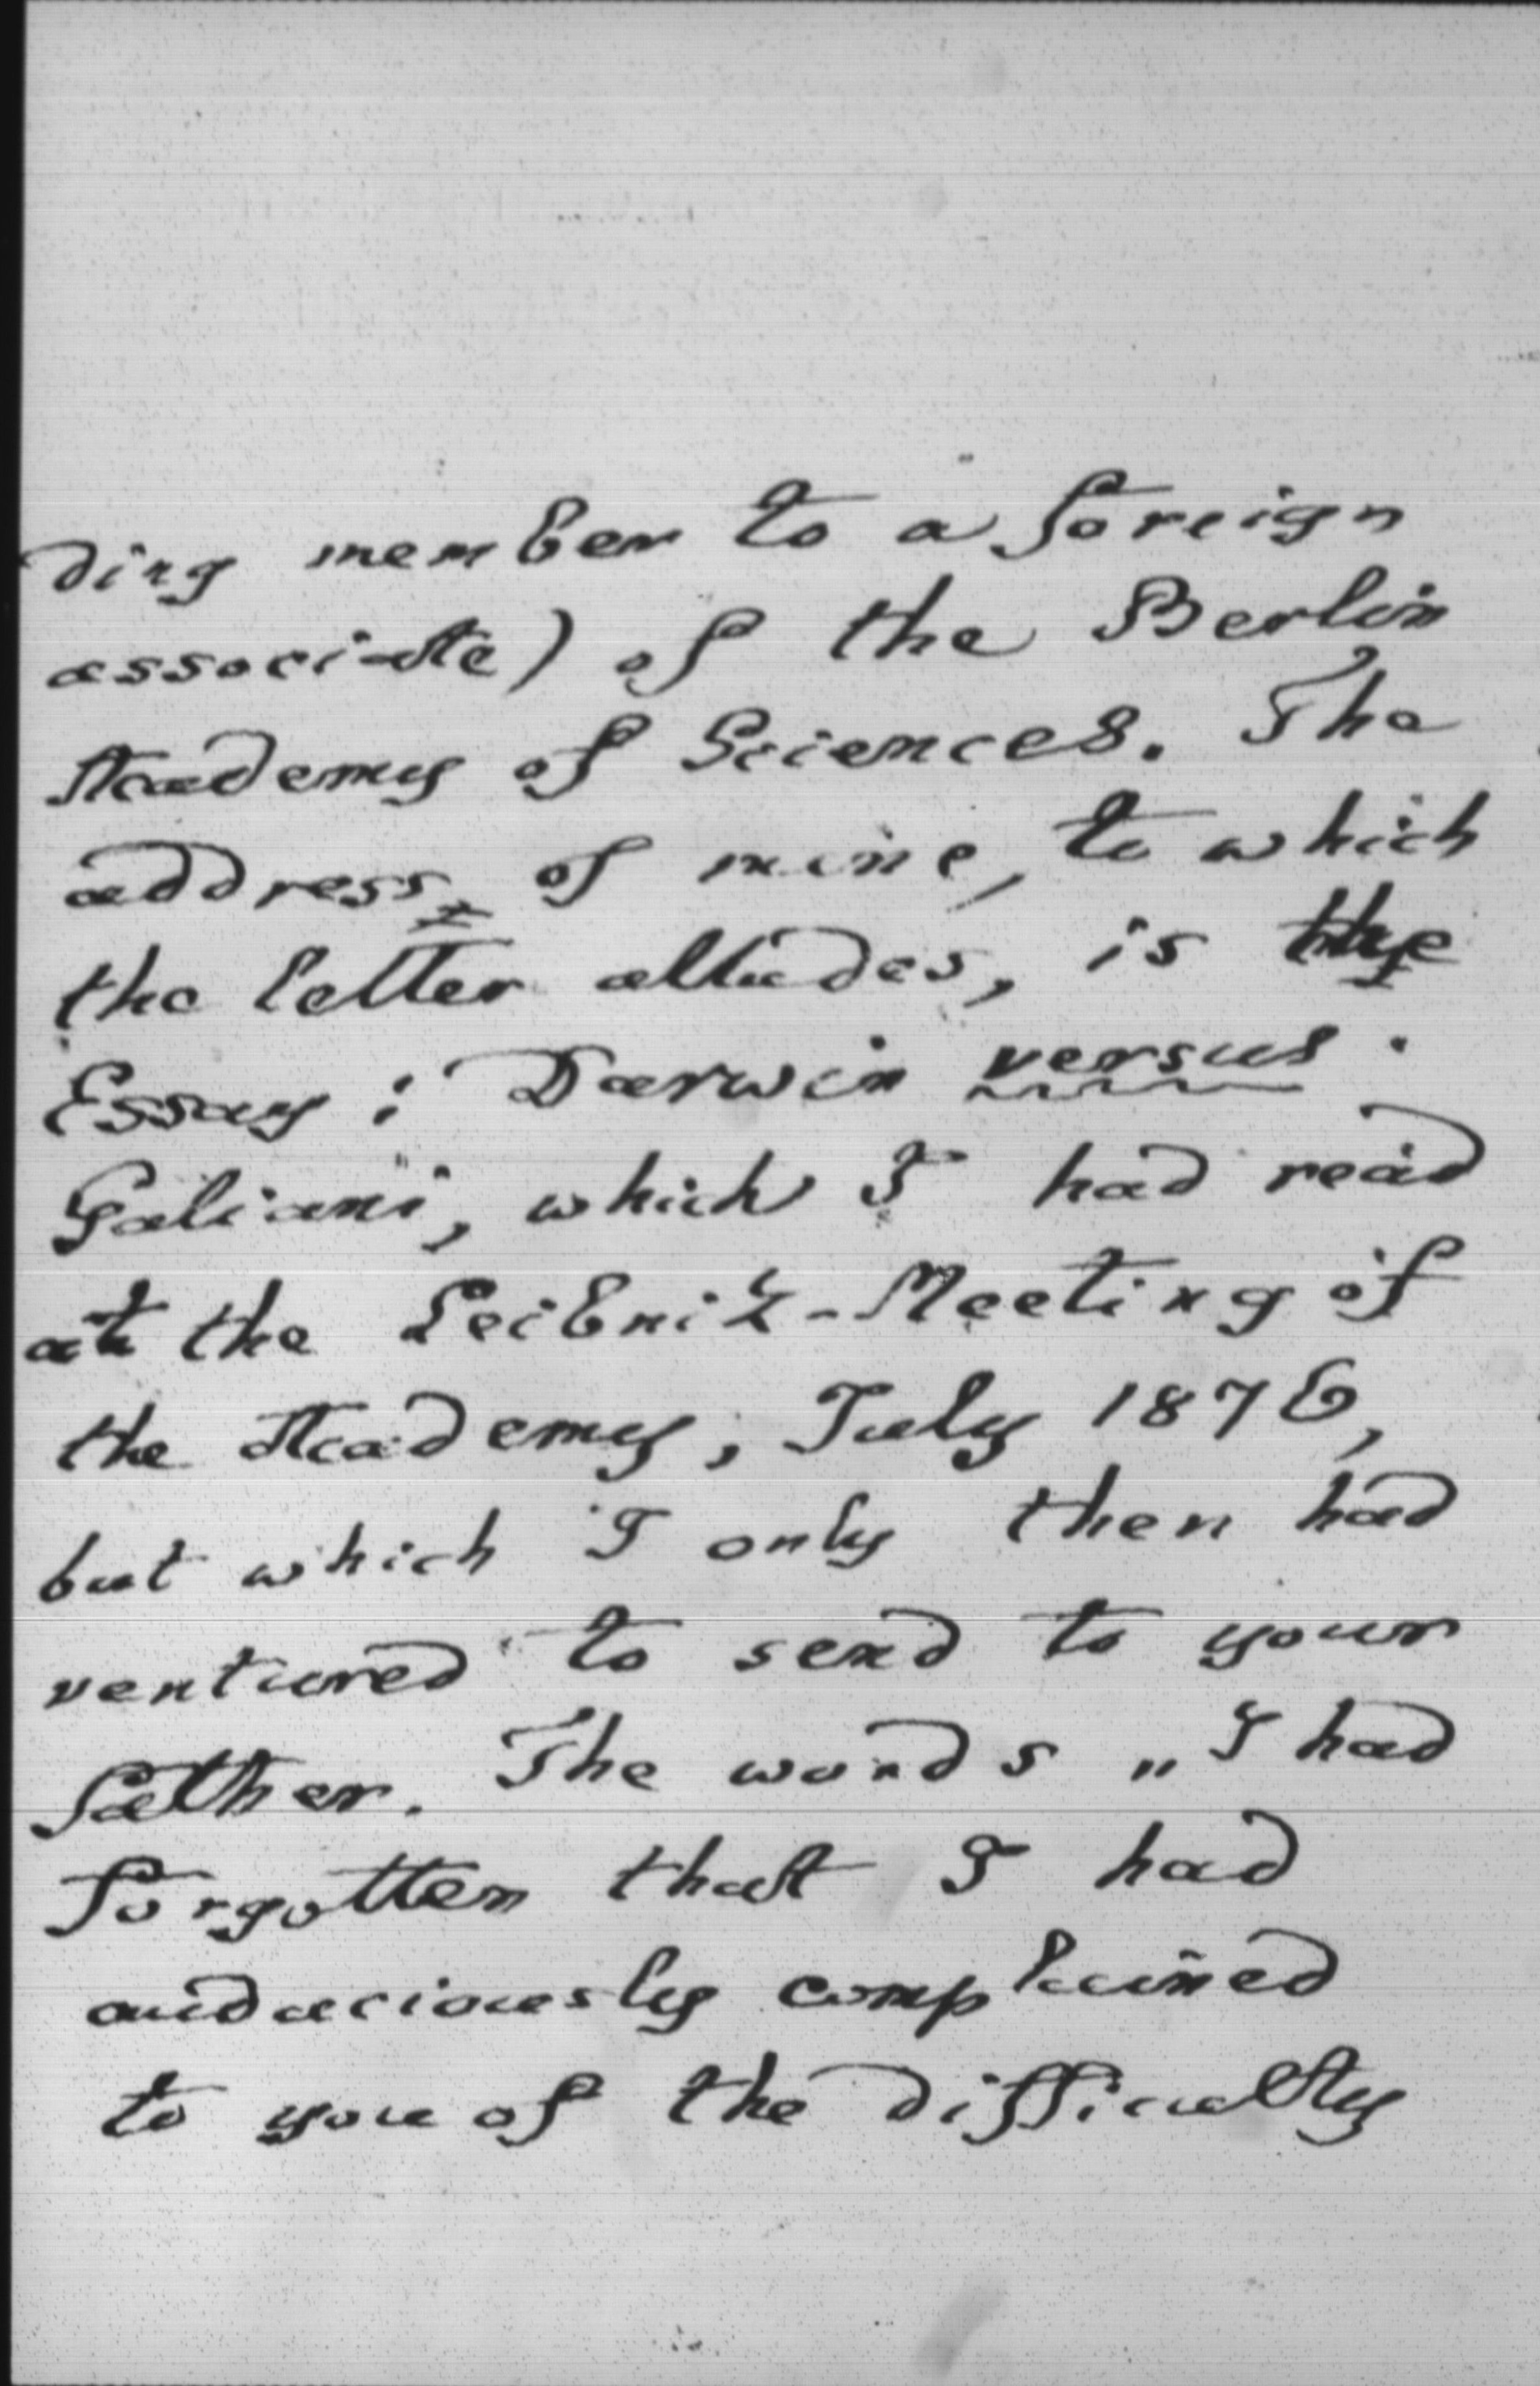 ding member to a foreign
associate) of the Berlin
Academy of Sciences. The
address of mine, to which
the letter alludes, is the
Essay: Darwin versus
Galiani, which I had read
at the Leibniz-Meeting of
the Academy, July 1876,
but which I only then had
ventured to send to your
father. The words „I had
forgotten that I had
audaciously complained
to you of the difficulty